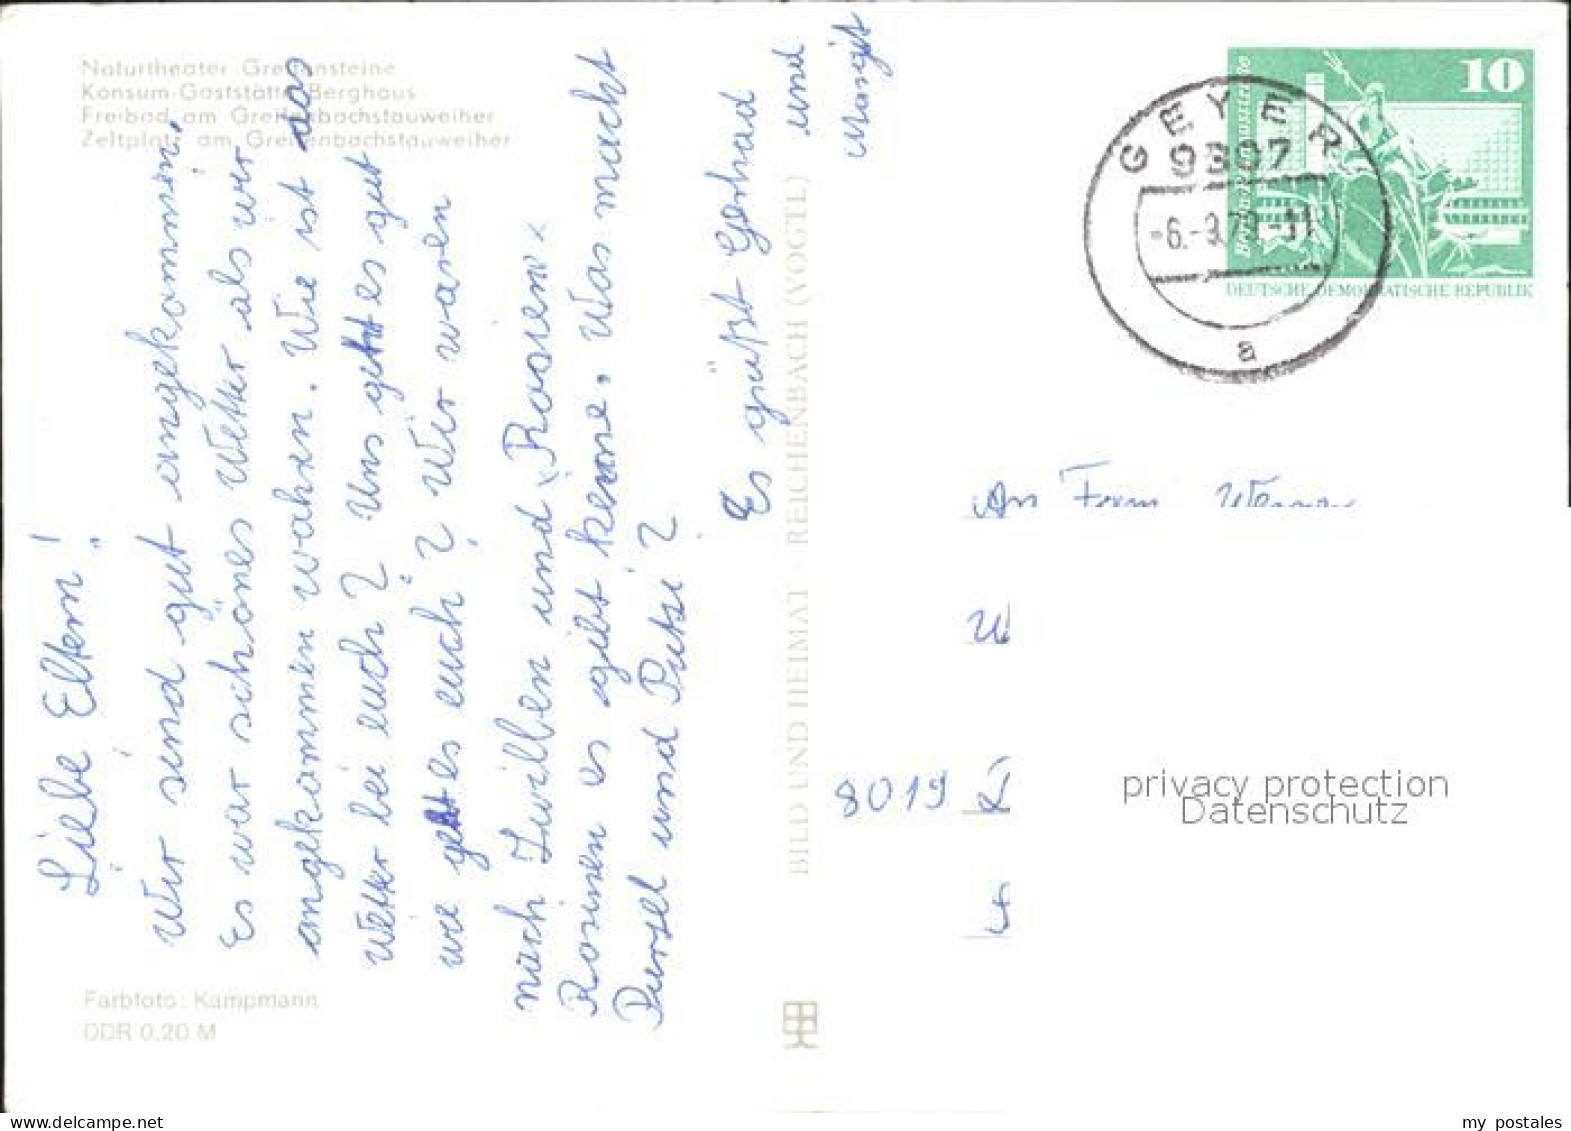 Naturtheater Greifensteine
Konsum-Gaststätte Berghaus
Freibad am Greifenbachstauweiher
Zeltplatz am Greifenbachstauweiher
Liebe Eltern!
Wir sind gut angekommen.
Es war schönes Wetter als wir
angekommen wahren. Wie ist das
Wetter bei euch? Uns geht es gut
wie geht es euch? Wir waren
nach Zwilben und "Rosienen"
Rosinen es gibt keine. Was macht
Pursel und Putzi?
Es grüßt Gerhad
und
Margit
Farbfoto: Kampmann
DDR 0,20 M
BILD UND HEIMAT · REICHENBACH (VOGTL)
10
DEUTSCHE DEMOKRATISCHE REPUBLIK
GEYER
9307
-6.-9.79-11
a
An Fam Werner
8019
privacy protection
Datenschutz
www.delcampe.net
my_postales